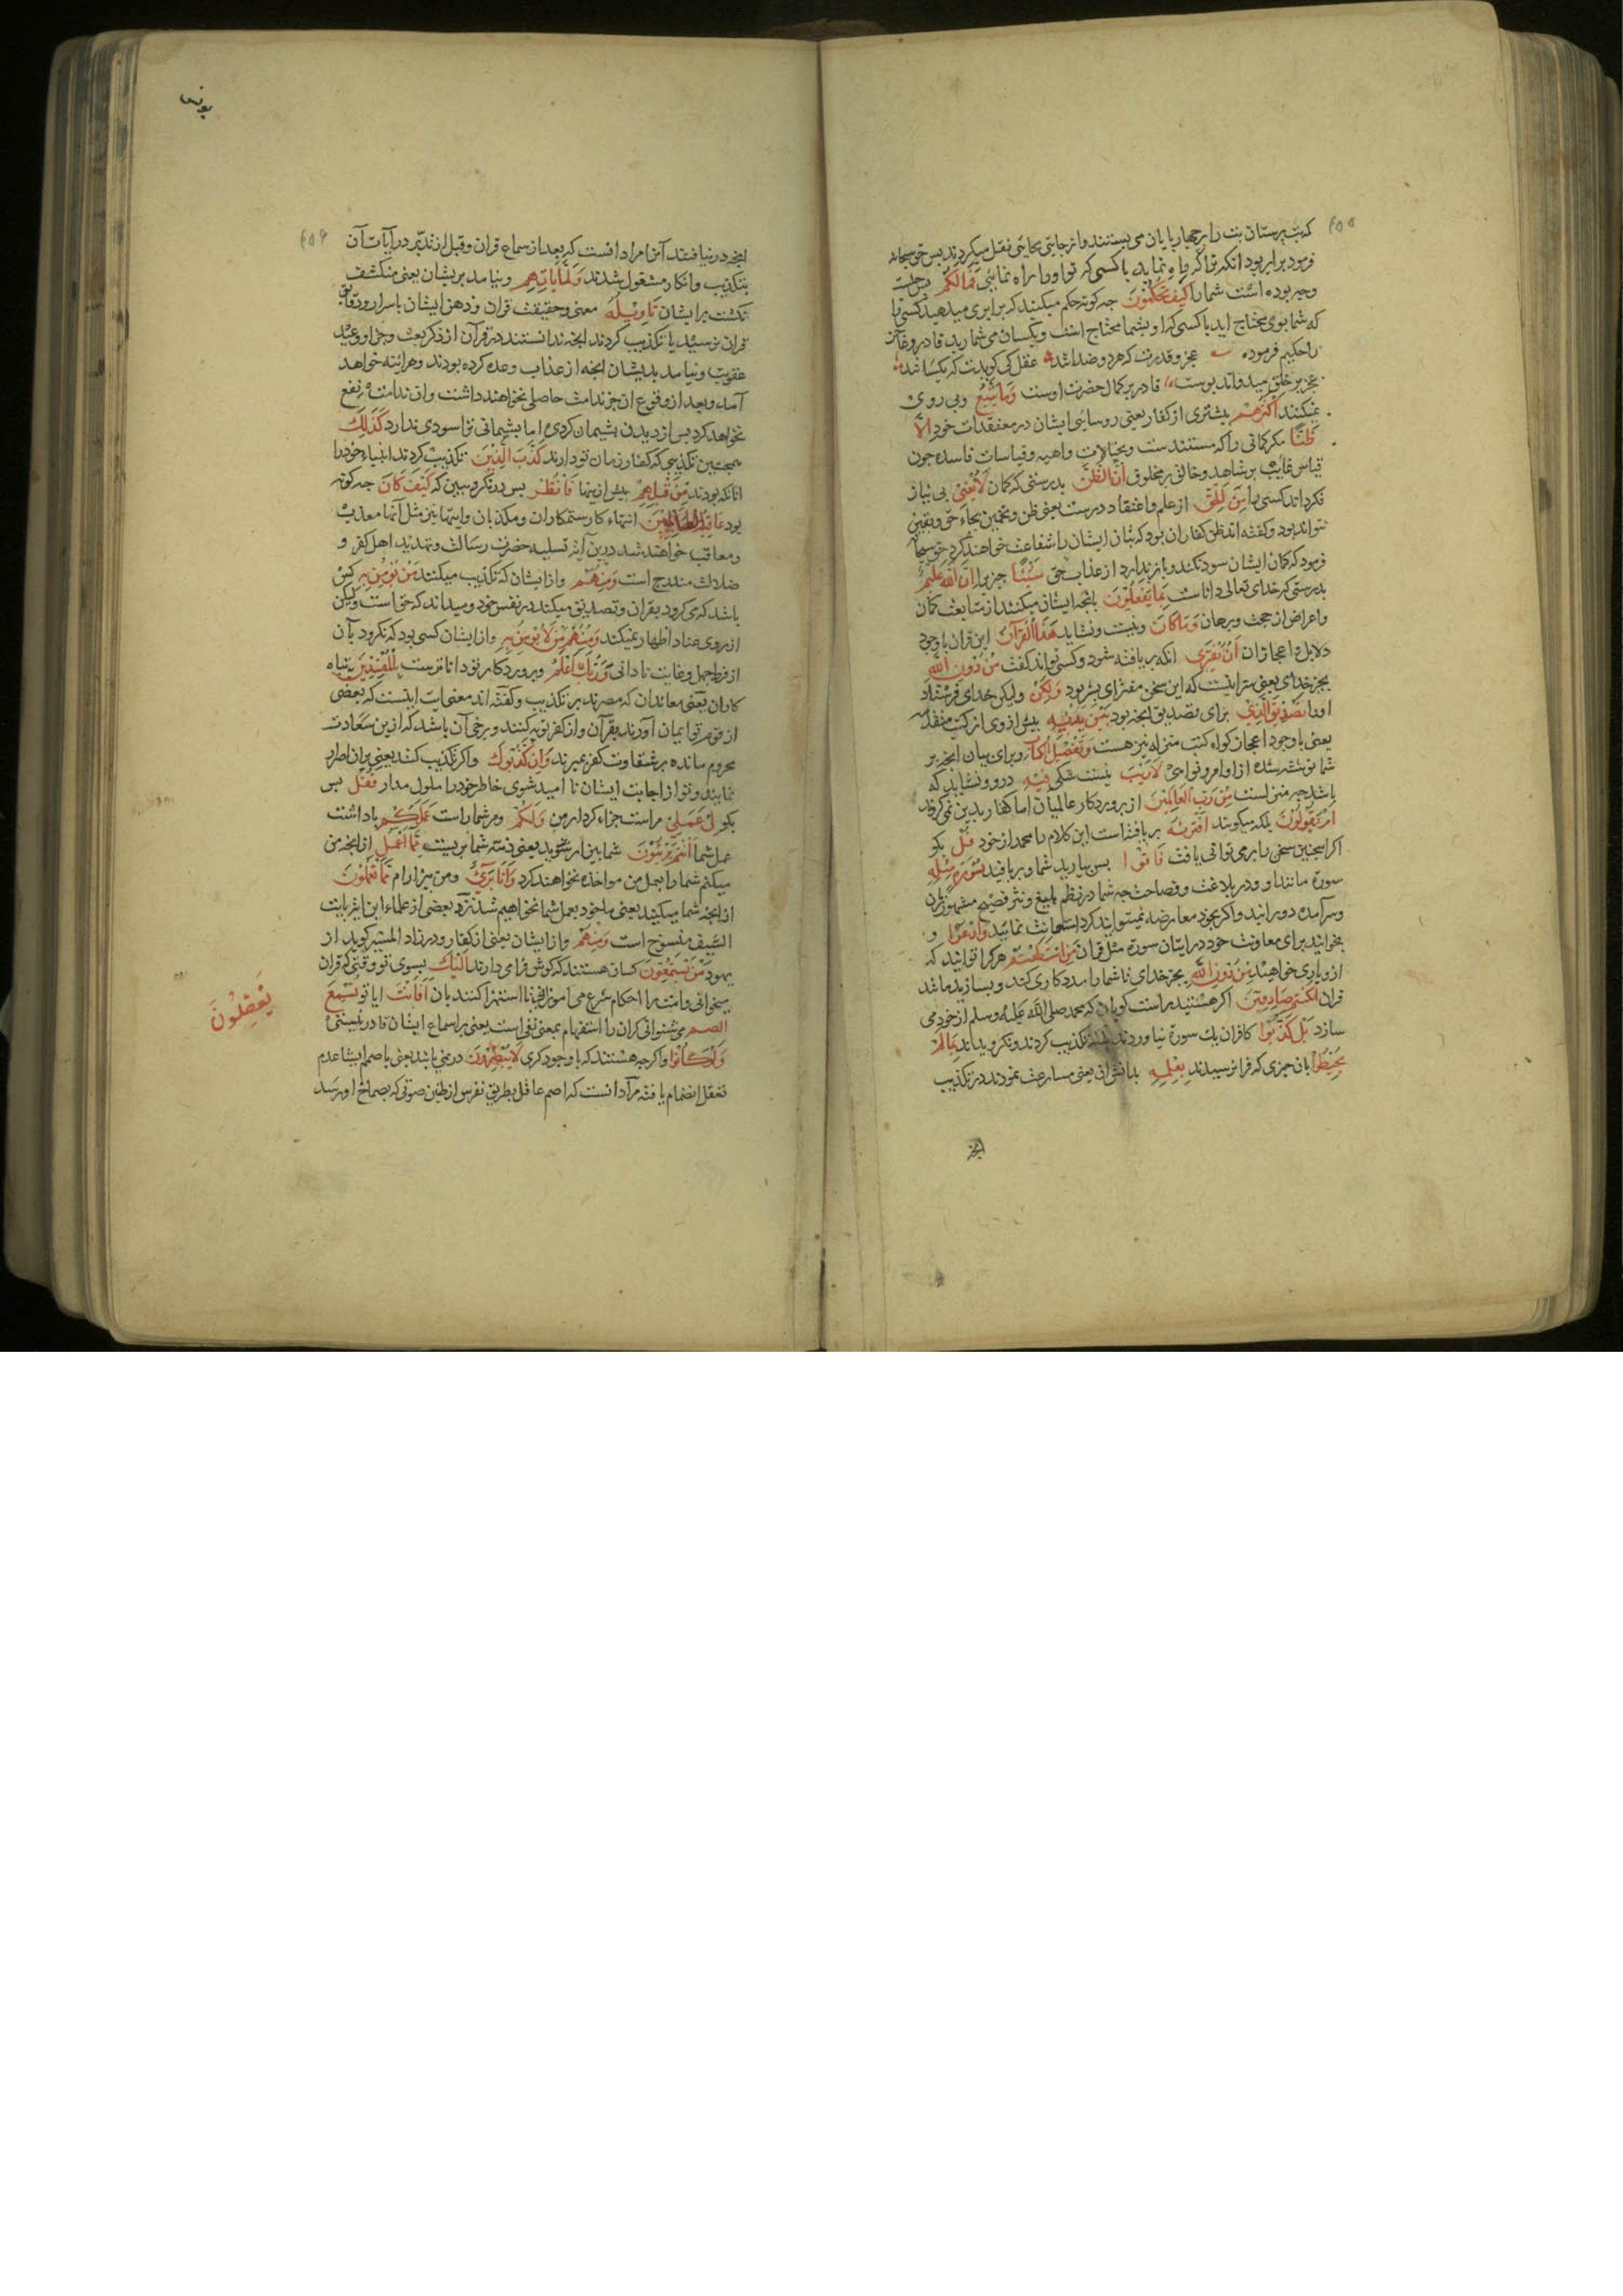 ٤٥٥
که بت پرستان بت را بر چهارپایان می بستند و از جایی بجایی نقل میکردند پس حق سبحانه
فرمود برابر بود آنکه ترا که راه نماید با کسی که تو او را راه نمایی فَمَا لَكُمْ پس چیست
و چه بوده است شما را كَيْفَ تَحْكُمُونَ چه کونه حکم میکنید که برابری میدهید کسی را
که شما بوی محتاج اید با کسی که او بشما محتاج است و یکسان می شمارید قادر و عاجز
را حکیم فرموده عجز و قدرت که هر دو ضد اند عقل کی کویدت که یکسانند
عجز بر خلق میدواند پوست قادر بر کمال حضرت اوست وَمَا يَتَّبِعُ و پی روی
نمیکنند أَكْثَرُهُمْ بیشتری از کفار یعنی روسای ایشان در معتقدات خود إِلَّا
ظَنًّا مکر کمانی را که مستندست بخیالات واهیه و قیاسات فاسده چون
قیاس غایب بر شاهد و خالق بر مخلوق إِنَّ الظَّنَّ بدرستی که کمان لَا يُغْنِي بی نیاز
نکرداند کسی را مِنَ الْحَقِّ از علم و اعتقاد درست یعنی ظن و تخمین بجاء حق و یقین
نتواند بود و کفته اند ظن کفار آن بود که بتان ایشان را شفاعت خواهند کرد حق سبحانه
فرمود که کمان ایشان سود نکند و باز ندارد از عذاب حق شَيْئًا چیزی را إِنَّ اللَّهَ عَلِيمٌ
بدرستی که خدای تعالی داناست بِمَا يَفْعَلُونَ بآنچه ایشان میکنند از متابعت کمان
و اعراض از حجت و برهان وَمَا كَانَ و نیست و نشاید هَذَا الْقُرْآنُ این قرآن با وجود
دلایل و اعجاز آن أَنْ يُفْتَرَى آنکه بر بافته شود و کسی تواند کفت مِنْ دُونِ اللَّهِ
بجز خدای یعنی سزا نیست که این سخن مفترای بشر بود وَلَكِنْ ولیکن خدای فرستاد
او را تَصْدِيقَ الَّذِي برای تصدیق آنچه بود بَيْنَ يَدَيْهِ پیش از وی از کتب متقدمه
یعنی با وجود اعجاز کواه کتب منزله نیز هست وَتَفْصِيلَ الْكِتَابِ و برای بیان آنچه بر
شما نوشته شده از اوامر و نواهی لَا رَيْبَ نیست شکی فِيهِ درو و نشاید که
باشد چه منزلست مِنْ رَبِّ الْعَالَمِينَ از پروردکار عالمیان اما کفار بدین نمی کروند
أَمْ يَقُولُونَ بلکه میکویند افْتَرَاهُ بر بافته است این کلام را محمد از خود قُلْ بکو
اکر اینچنین سخن را بر می توانی بافت فَأْتُوا پس بیارید شما و بر بافید بِسُورَةٍ مِثْلِهِ
سوره مانند او در بلاغت و فصاحت چه شما در نظم بلیغ و نثر فصیح مشهور زمان
و سرآمده دورانید و اکر بخود معارضه نمیتوانید کرد استعانت نمایید وَادْعُوا و
بخوانید برای معاونت خود در اتیان سوره مثل قرآن مَنِ اسْتَطَعْتُمْ هر که را توانید که
از و یاری خواهید مِنْ دُونِ اللَّهِ بجز خدای تا شما را مددکاری کند و بسازید مانند
قرآن إِنْ كُنْتُمْ صَادِقِينَ اکر هستید راست کویان که محمد صلی الله علیه وسلم از خود می
سازد بَلْ كَذَّبُوا کافران یک سوره نیاوردند بلکه تکذیب کردند و نکرویدند بِمَا لَمْ
يُحِيطُوا بآن چیزی که فرا نرسیدند بِعِلْمِهِ بدانش آن یعنی مسارعت نمودند در تکذیب
آنچه
یونس
٤٥٦
آنچه در نیافتند آن مراد آنست که بعد از سماع قرآن و قبل از تدبر در آیات آن
بتکذیب و انکار مشغول شدند وَلَمَّا يَأْتِهِمْ و نیامد بریشان یعنی منکشف
نکشت برایشان تَأْوِيلُهُ معنی و حقیقت قرآن و ذهن ایشان باسرار و دقایق
قرآن نرسید یا تکذیب کردند آنچه ندانستند در قرآن از ذکر بعث و جزا و وعید
عقوبت و نیامد بدیشان آنچه از عذاب وعده کرده بودند و هرآینه خواهد
آمد و بعد از وقوع آن جز ندامت حاصلی نخواهند داشت و آن ندامت نفع
نخواهد کرد پس از دیدن پشیمان کردی اما پشیمانی ترا سودی ندارد كَذَلِكَ
همچنین تکذیبی که کفار زمان تو دارند كَذَّبَ الَّذِينَ تکذیب کردند انبیاء خود را
آنانکه بودند مِنْ قَبْلِهِمْ پیش ازینها فَانْظُرْ پس درنکر و ببین که كَيْفَ كَانَ چه کونه
بود عَاقِبَةُ الظَّالِمِينَ انتهاء کار ستمکاران و مکذبان و اینها نیز مثل آنها معذب
و معاقب خواهند شد درین آیه تسلیه حضرت رسالت و تهدید اهل کفر و
ضلالت مندرج است وَمِنْهُمْ و از ایشان که تکذیب میکنند مَنْ يُؤْمِنُ بِهِ کس
باشد که می کرود بقرآن و تصدیق میکند در نفس خود و میداند که حق است ولیکن
از روی عناد اظهار نمیکند وَمِنْهُمْ مَنْ لَا يُؤْمِنُ بِهِ و از ایشان کسی بود که نکرود بآن
از فرط جهل و غایت نادانی وَرَبُّكَ أَعْلَمُ و پروردکار تو داناترست بِالْمُفْسِدِينَ بتباه
کاران یعنی معاندان که مصرند بر تکذیب و کفته اند معنی آیت اینست که بعضی
از قوم تو ایمان آورند بقرآن و از کفر توبه کنند و برخی آن باشد که ازین سعادت
محروم مانده بر شقاوت کفر بمیرند وَإِنْ كَذَّبُوكَ و اکر تکذیب کنند یعنی بر آن اصرار
نمایند و تو از اجابت ایشان نا امید شوی خاطر خود را ملول مدار فَقُلْ پس
بکو لِي عَمَلِي مراست جزاء کردار من وَلَكُمْ و مر شما راست عَمَلُكُمْ پاداشت
عمل شما أَنْتُمْ بَرِيئُونَ شما بیزار شوید یعنی ذمه شما بریست مِمَّا أَعْمَلُ از آنچه من
میکنم شما را بعمل من مواخذه نخواهند کرد وَأَنَا بَرِيءٌ و من بیزارم مِمَّا تَعْمَلُونَ
از آنچه شما میکنید یعنی ماخوذ بعمل شما نخواهیم شد نزد بعضی از علماء این آیت بآیت
السیف منسوخ است وَمِنْهُمْ و از ایشان یعنی از کفار و در زاد المسیر کوید از
یهود مَنْ يَسْتَمِعُونَ کسان هستند که کوش فرا می دارند إِلَيْكَ بسوی تو وقتی که قرآن
میخوانی و امت را احکام شرع می آموزی تا استهزا کنند بآن أَفَأَنْتَ ایا تو تُسْمِعُ
الصُّمَّ می شنوانی کران را استفهام بمعنی نفی است یعنی بر اسماع ایشان قادر نیستی
وَلَوْ كَانُوا و اکرچه هستند که با وجود کری لَا يَعْقِلُونَ در نمی یابند یعنی با صمم ایشان عدم
تعقل انضمام یافته مراد آنست که اصم عاقل بطریق تفرس از طنین صوتی که بصماخ او رسد
يَعْقِلُونَ